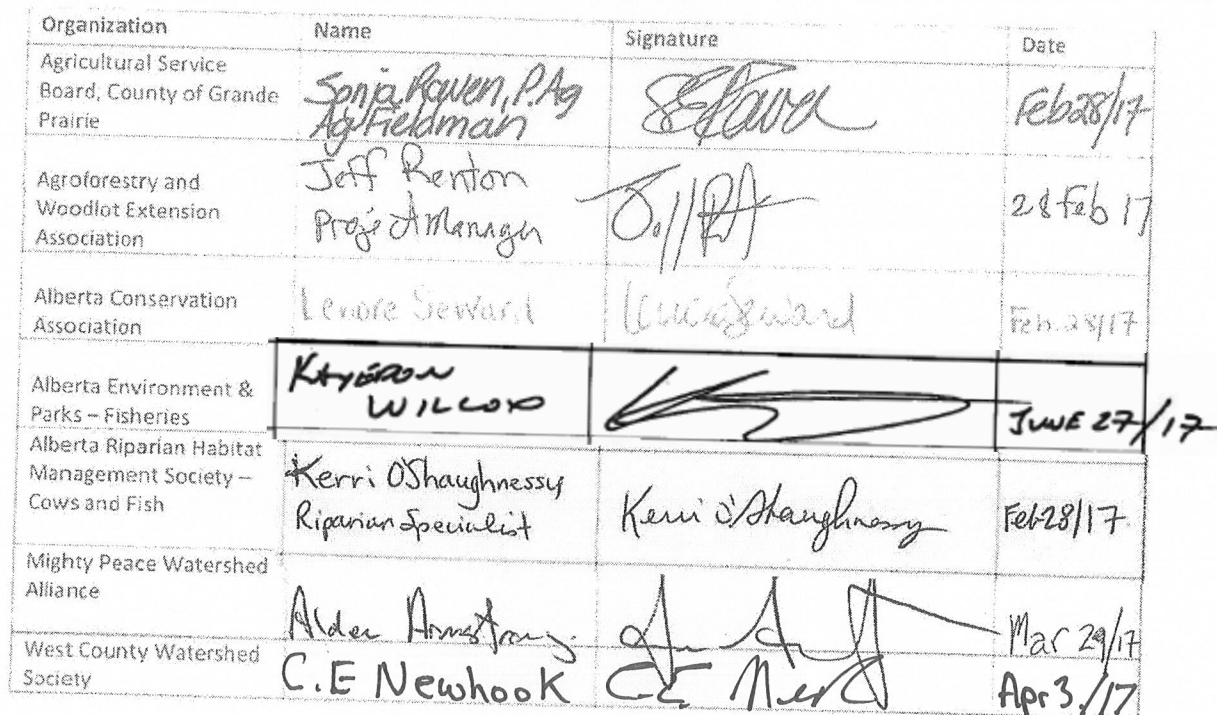 Organization Name Signature Date
Agricultural Service
Board, County of Grande
Prairie
Sonja Raven, P.Ag
Ag Fieldman
Feb 28/17
Agroforestry and
Woodlot Extension
Association
Jeff Renton
Project Manager
28 Feb 17
Alberta Conservation
Association
Lenore Seward
Feb 28/17
Alberta Environment &
Parks – Fisheries
WILCOX
JUNE 27/17
Alberta Riparian Habitat
Management Society –
Cows and Fish
Kerri O'Shaughnessy
Riparian Specialist
Kerri O'Shaughnessy
Feb 28/17
Mighty Peace Watershed
Alliance
Alden Armstrong
Mar 29/17
West County Watershed
Society
C.E Newhook
Apr 3./17